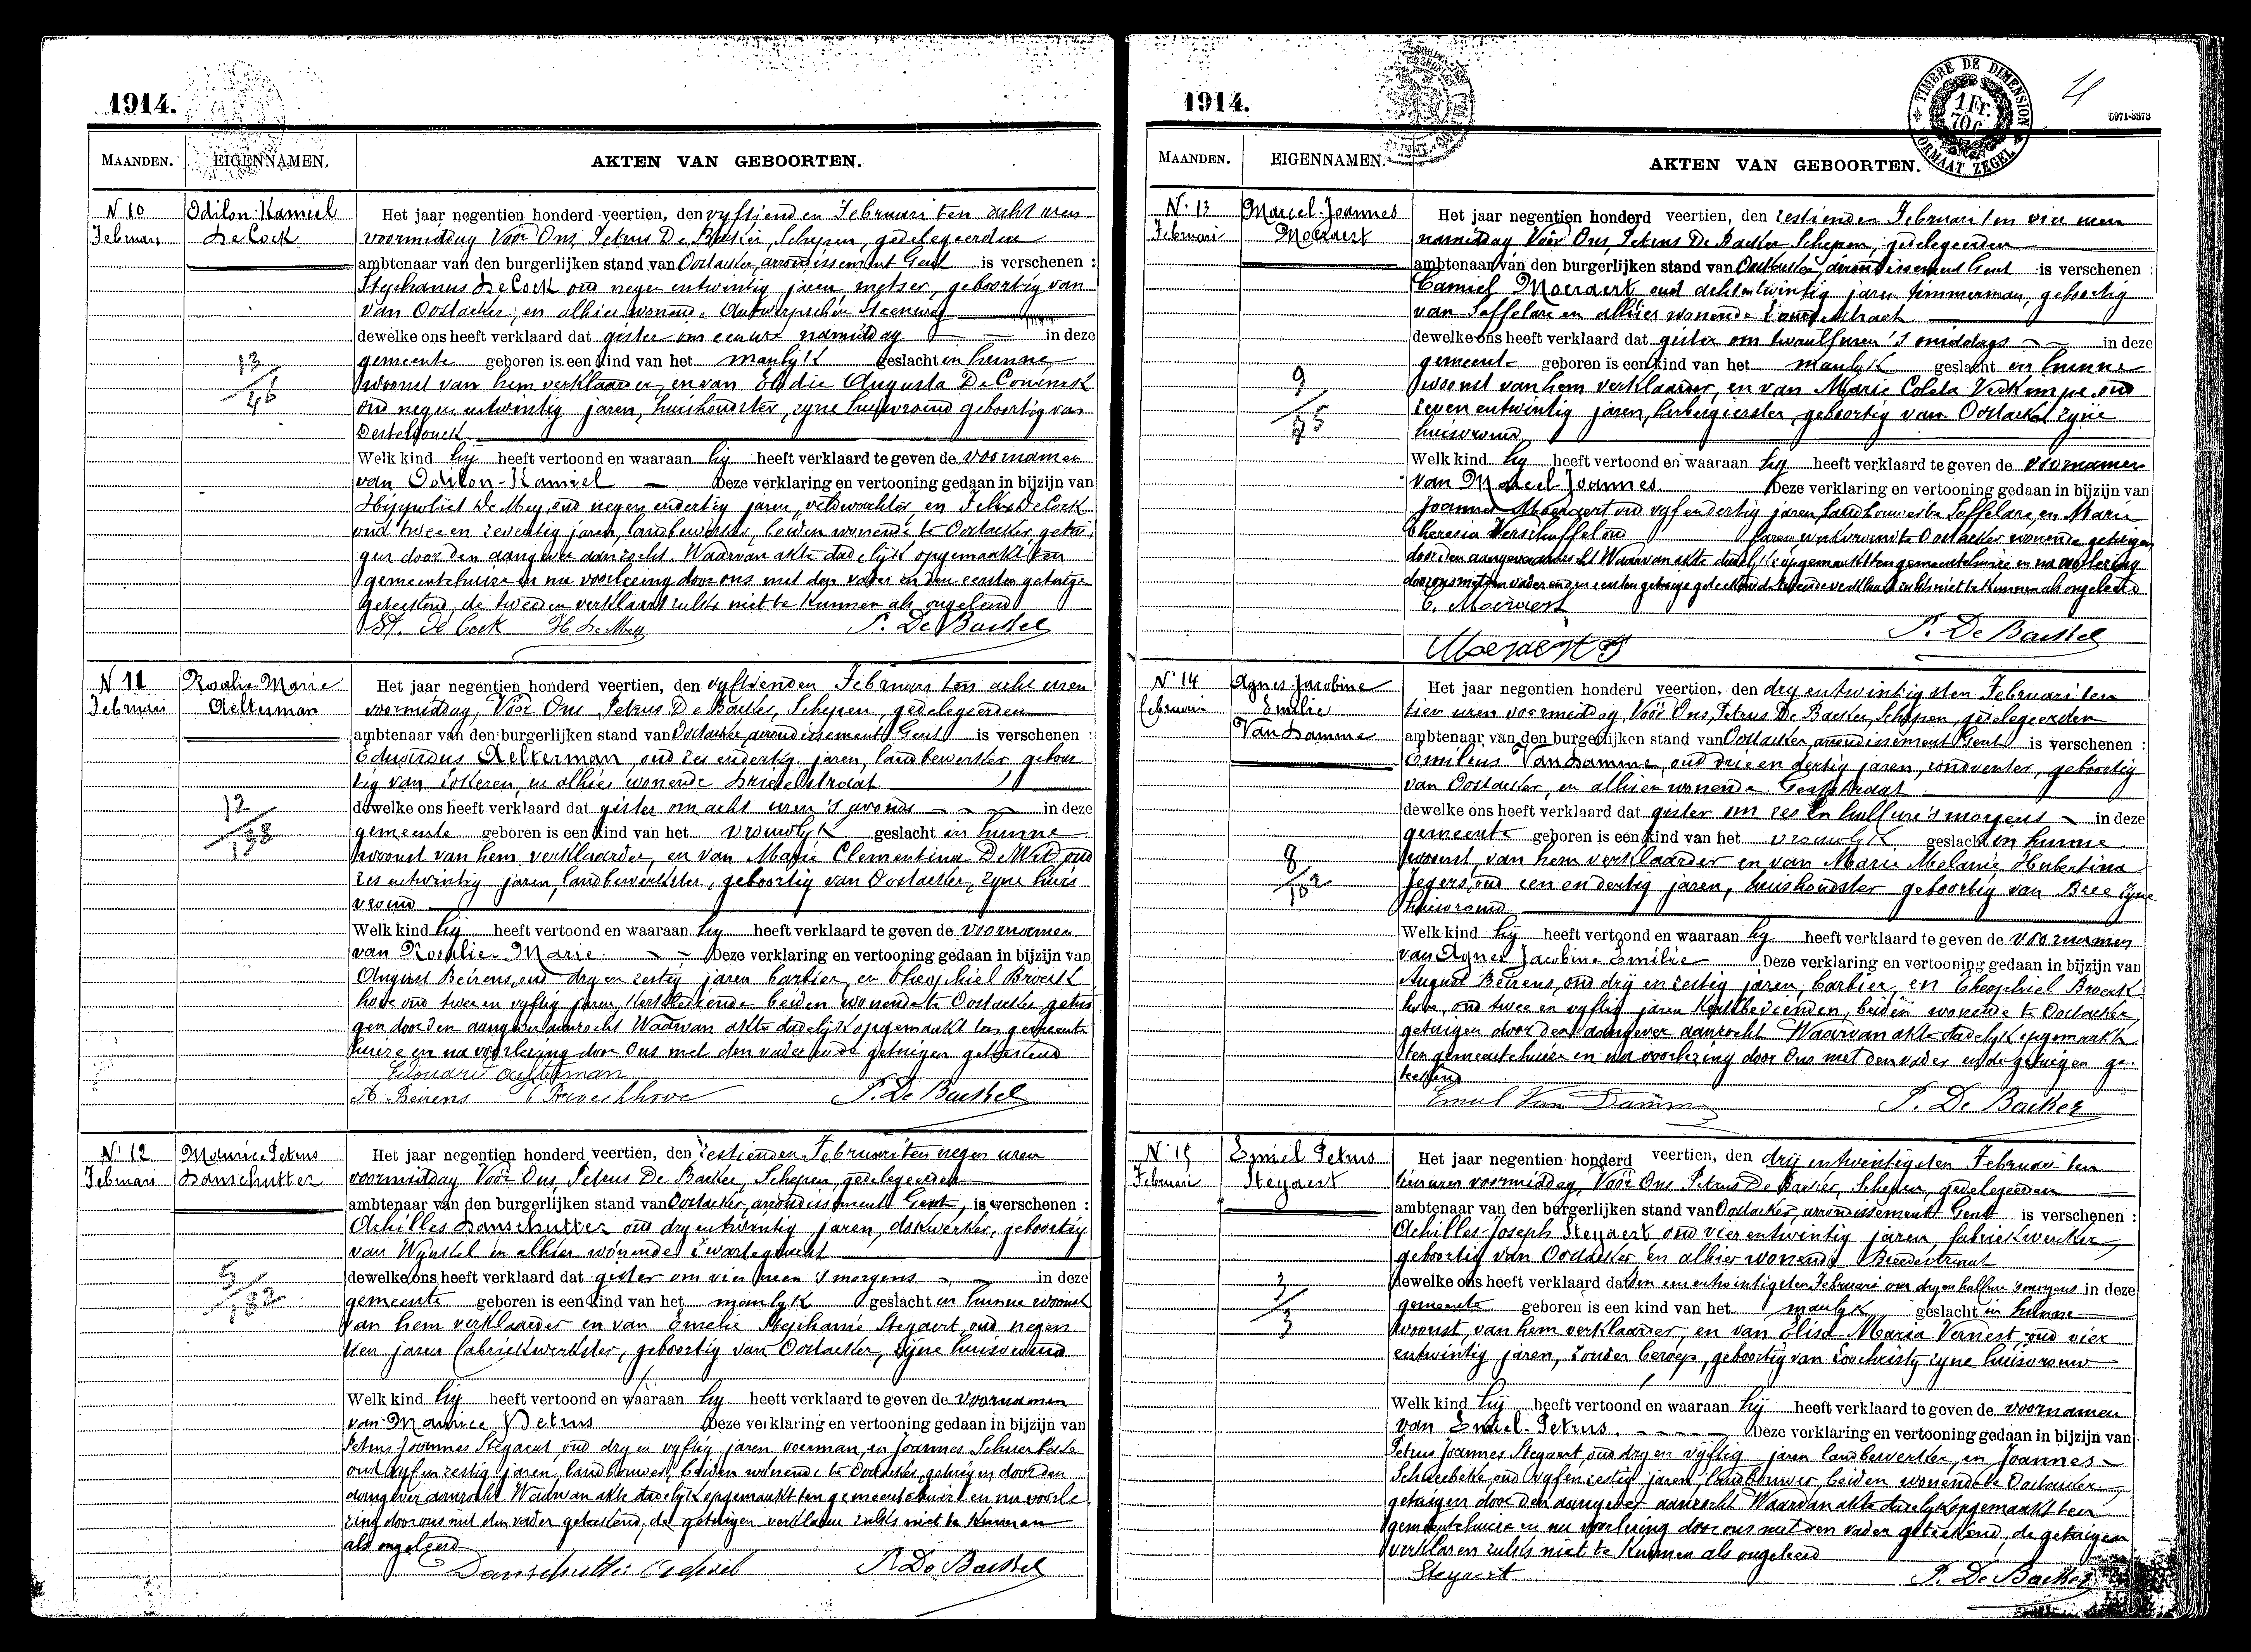 1914.
MAANDEN. EIGENNAMEN. AKTEN VAN GEBOORTEN.
N 10
Februari
Odilon-Kamiel
De Cock
13
46
Het jaar negentien honderd veertien, den vyftienden Februari ten acht uren
voormiddag Vóór Ons Petrus De Baeker, Schepen, gedelegeerden
ambtenaar van den burgerlijken stand van Oostacker, arrondissement Gent is verschenen :
Stephanus De Cock oud negen entwintig jaren, metser, geboortig van
van Oostacker, en alhier wonende Antwerpschen Steenweg
dewelke ons heeft verklaard dat gister om een ure namiddag in deze
gemeente geboren is een kind van het manlyk geslacht in hunne
woonst van hem verklaarder, en van Elodie Augusta De Coninck
oud negen entwintig jaren, huishoudster, zyne huisvrouw geboortig van
Destelbonck
Welk kind hy heeft vertoond en waaraan hy heeft verklaard te geven de voornamen
van Odilon-Kamiel Deze verklaring en vertooning gedaan in bijzijn van
Hippoliet De Mey, oud negen endertig jaren, veldwachter, en Felix De Cock
oud twee en zeventig jaren, landbewerker, beiden wonende te Oostacker, getui
gen door den aangever aanzocht. Waarvan akte dadelyk opgemaakt ten
gemeentehuize en na voorlezing door ons met den vader en den eersten getuige
geteekend, de tweeden verklaard zulks niet te kunnen als ongeleerd
St. De Cock H De Mey P. De Baeker
N 11
Februari
Rosalie Marie
Aelterman
12
138
Het jaar negentien honderd veertien, den vyftienden Februari ten acht uren
voormiddag, Vóór Ons Petrus De Baeker, Schepen, gedelegeerden
ambtenaar van den burgerlijken stand van Oostacker, arrondissement Gent is verschenen :
Eduardus Aelterman oud zes endertig jaren, landbewerker geboor
tig van Lokeren, en alhier wonende Drieselstraat
dewelke ons heeft verklaard dat gister om acht uren 's avonds in deze
gemeente geboren is een kind van het vrouwlyk geslacht in hunne
woonst van hem verklaarder, en van Marie Clementina De Wilde oud
zes entwintig jaren, landbewerkster, geboortig van Oostacker, zyne huis
vrouw
Welk kind hy heeft vertoond en waaraan hy heeft verklaard te geven de voornamen
van Rosalie Marie. Deze verklaring en vertooning gedaan in bijzijn van
August Beirens, oud dry en zestig jaren barbier, en Theophiel Broeck
hove oud twee en vyftig jaren kerkbediende beiden wonende te Oostacker, getui
gen door den aangever aanzocht Waarvan akte dadelijk opgemaakt ten gemeente
huize en na voorlezing door Ons met den vader en de getuigen geteekend
Edouard Aelterman
A Beirens T Broeckhove P. De Baeker
N. 12
Februari
Maurice Petrus
Danschutter
5
132
Het jaar negentien honderd veertien, den zestienden Februari ten negen uren
voormiddag Vóór Ons, Petrus De Baeker, Schepen, gedelegeerden
ambtenaar van den burgerlijken stand van Oostacker, arrondissement Gent, is verschenen :
Achilles Danschutter oud dry entwintig jaren, dokwerker, geboortig
van Wynkel en alhier wonende Zwartegracht
dewelke ons heeft verklaard dat gister om vier uren 's morgens in deze
gemeente geboren is een kind van het manlyk geslacht in hunne woonst
van hem verklaarder en van Emelie Stephanie Steyaert, oud negen
tien jaren fabriekwerkster, geboortig van Oostacker, zijne huisvrouw
Welk kind hy heeft vertoond en waaraan hy heeft verklaard te geven de voornamen
van Maurice Petrus Deze verklaring en vertooning gedaan in bijzijn van
Petrus Joannes Steyaert, oud dry en vyftig jaren voerman, en Joannes Scheerbeke
oud vyf en zestig jaren, landbouwer, beiden wonende te Oostacker, getuigen door den
aangever aanzocht Waarvan akte dadelijk opgemaakt ten gemeentehuize en na voorle
zing door ons met den vader geteekend, de getuigen verklaren zulks niet te kunnen
als ongeleerd
Danschutter Achiel P. De Baeker
1914.
TIMBRE DE DIMENSION
1 Fr.
70 c
FORMAAT ZEGEL
4
MAANDEN. EIGENNAMEN. AKTEN VAN GEBOORTEN.
N. 13
Februari
Marcel-Joannes
Moeraert
9
75
Het jaar negentien honderd veertien, den zestienden Februari ten vier uren
namiddag Vóór Ons, Petrus De Baeker Schepen, gedelegeerden
ambtenaar van den burgerlijken stand van Oostacker, arrondissement Gent is verschenen :
Camiel Moeraert oud achtentwintig jaren timmerman, geboortig
van Saffelare en alhier wonende
dewelke ons heeft verklaard dat gister om twaalf uren 's middags in deze
gemeente geboren is een kind van het manlyk geslacht in hunne
woonst van hem verklaarder, en van Marie Coleta Verkimpe oud
zeven entwintig jaren, herbergierster, geboortig van Oostacker zyne
huisvrouw
Welk kind hy heeft vertoond en waaraan hy heeft verklaard te geven de voornamen
van Marcel-Joannes Deze verklaring en vertooning gedaan in bijzijn van
Joannes Moeraert oud vyf endertig jaren, landbouwer te Saffelare, en Marie
Theresia Verschaffel oud jaren, wonende te Oostacker getuigen
door den aangever aanzocht Waarvan akte dadelijk opgemaakt ten gemeentehuize en na voorlezing
door ons met den vader en den eersten getuige geteekend de tweede verklaard zulks niet te kunnen als ongeleerd
C. Moeraert
Moeraert J P. De Baeker
N. 14
Februari
Agnes Jacobine
Emilie
Van Damme
8
102
Het jaar negentien honderd veertien, den dry entwintigsten Februari ten
tien uren voormiddag, Vóór Ons, Petrus De Baeker, Schepen, gedelegeerden
ambtenaar van den burgerlijken stand van Oostacker, arrondissement Gent is verschenen :
Emilius Van Damme, oud drie en dertig jaren, geboortig
van Oostacker, en alhier wonende Gentstraat
dewelke ons heeft verklaard dat gister om zes en half ure 's morgens in deze
gemeente geboren is een kind van het vrouwlyk geslacht in hunne
woonst van hem verklaarder en van Marie Melanie Hubertina
Jegers, oud een en dertig jaren, huishoudster geboortig van Bree zyne
huisvrouw
Welk kind hy heeft vertoond en waaraan hy heeft verklaard te geven de voornamen
van Agnes Jacobine Emilie Deze verklaring en vertooning gedaan in bijzijn van
August Beirens, oud drij en zestig jaren, barbier, en Theophiel Broeck
hove, oud twee en vyftig jaren kerkbedienden, beiden wonende te Oostacker,
getuigen door den aangever aanzocht Waarvan akte dadelyk opgemaakt
ten gemeentehuize en na voorlezing door Ons met den vader en de getuigen ge-
teekend
Emiel Van Damme P. De Baeker
N. 15
Februari
Emiel Petrus
Steyaert
3
3
Het jaar negentien honderd veertien, den drij entwintigsten Februari ten
tien uren voormiddag, Vóór Ons Petrus De Baeker, Schepen, gedelegeerden
ambtenaar van den burgerlijken stand van Oostacker, arrondissement Gent is verschenen :
Achilles-Joseph Steyaert oud vier entwintig jaren, fabriekwerker,
geboortig van Oostacker en alhier wonende Breedestraat
dewelke ons heeft verklaard dat den een entwintigsten Februari om dry en half ure 's morgens in deze
gemeente geboren is een kind van het manlyk geslacht in hunne
woonst, van hem verklaarder, en van Elisa Maria Vernest oud vier
entwintig jaren, zonder beroep, geboortig van Loochristy zyne huisvrouw
Welk kind hij heeft vertoond en waaraan hij heeft verklaard te geven de voornamen
van Emiel-Petrus. Deze verklaring en vertooning gedaan in bijzijn van
Petrus Joannes Steyaert, oud dry en vijftig jaren landbewerker, en Joannes
Scheerbeke oud vyf en zestig jaren, landbouwer, beiden wonende te Oostacker,
getuigen door den aangever aanzocht Waarvan akte dadelyk opgemaakt ten
gemeentehuize en na voorlezing door ons met den vader geteekend, de getuigen
verklaren zulks niet te kunnen als ongeleerd
Steyaert P. De Baeker